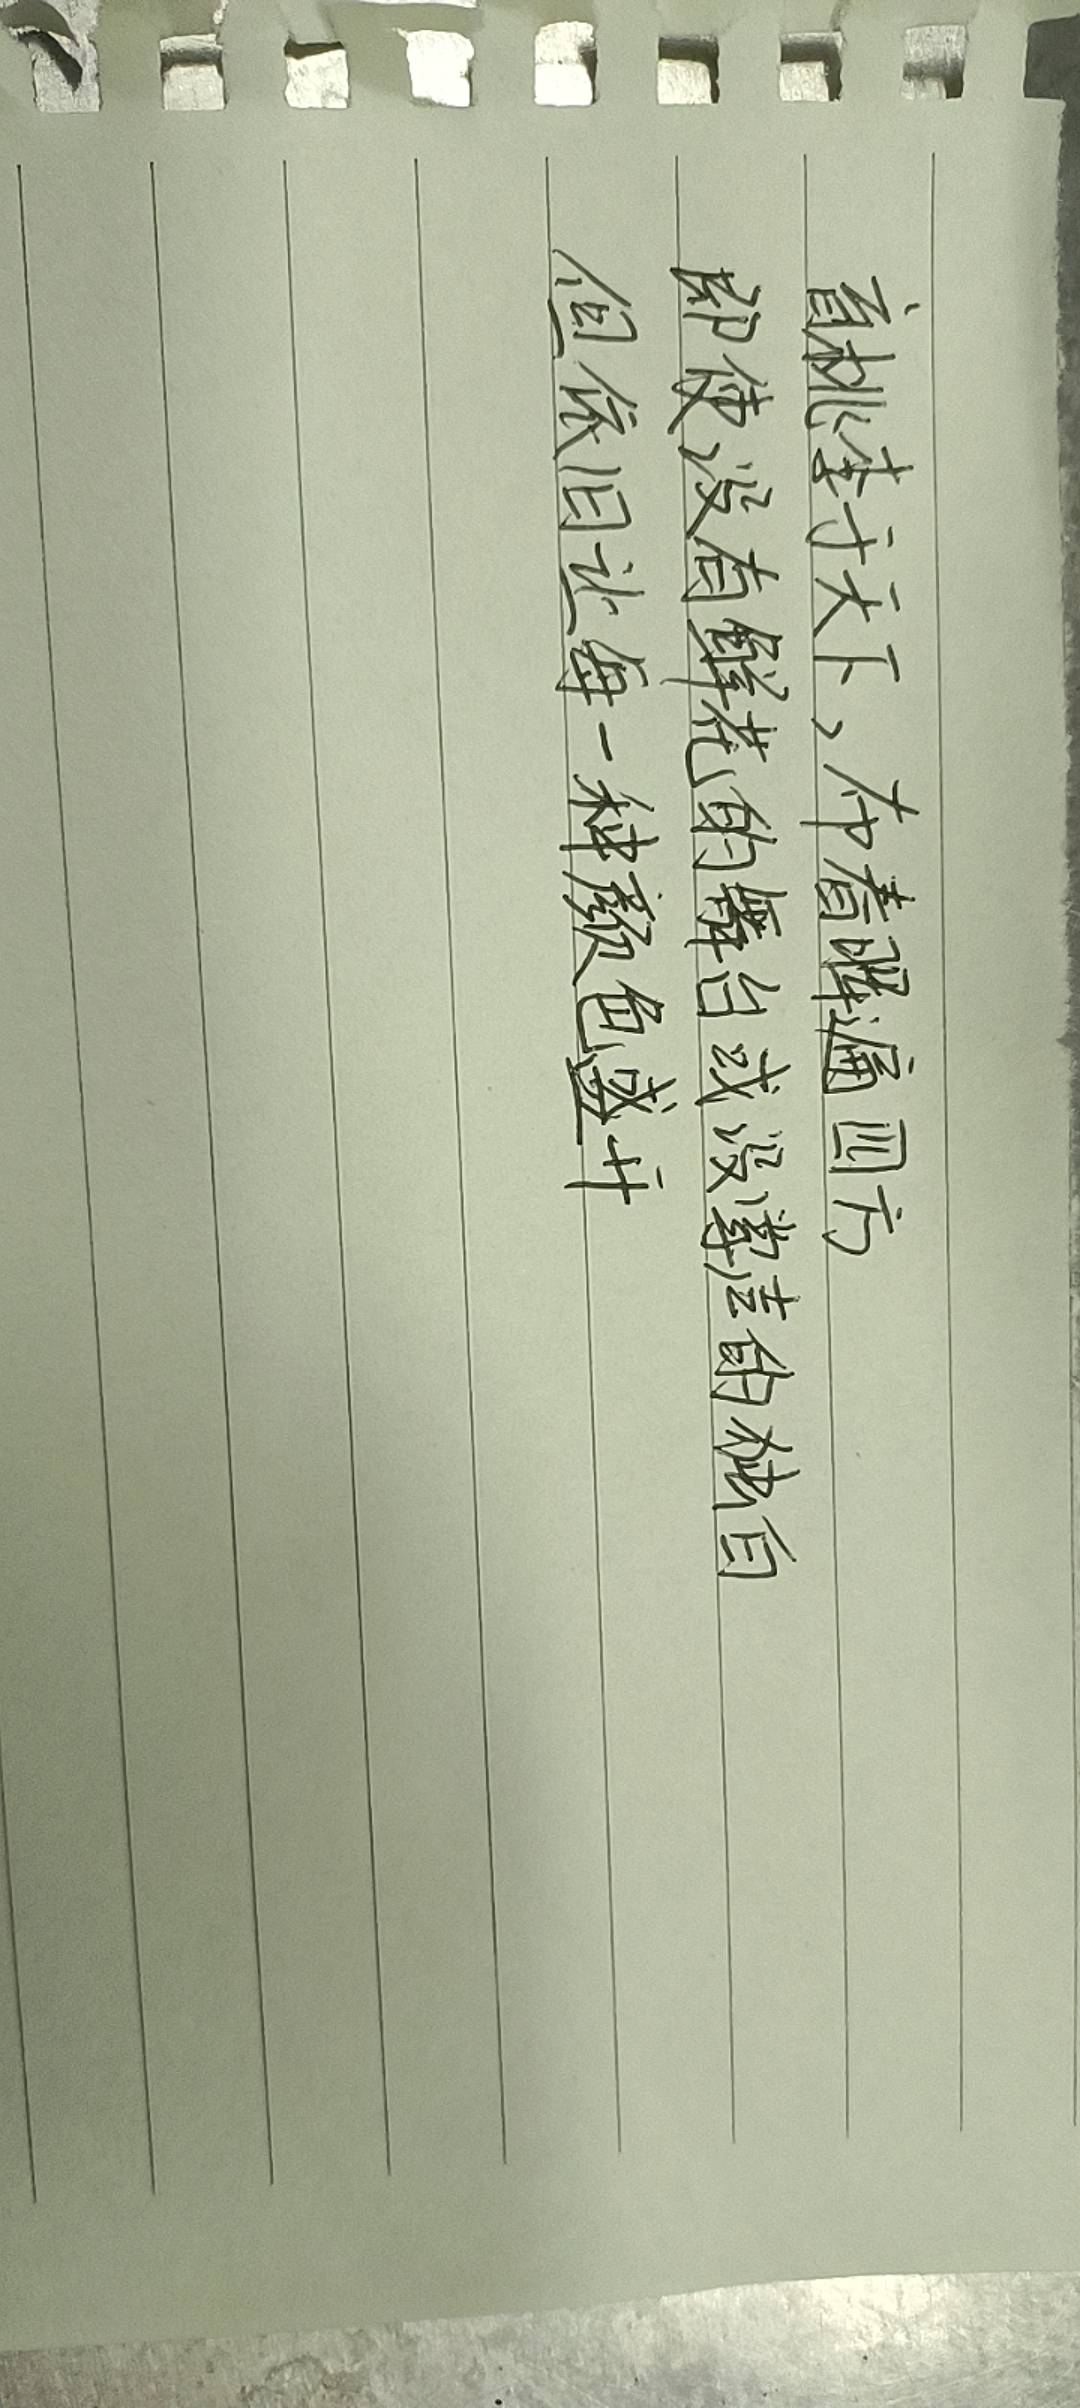 育桃李于天下、布春晖遍四方
即使没有鲜花的舞台或没掌声的独白
但依旧让每一种颜色盛开